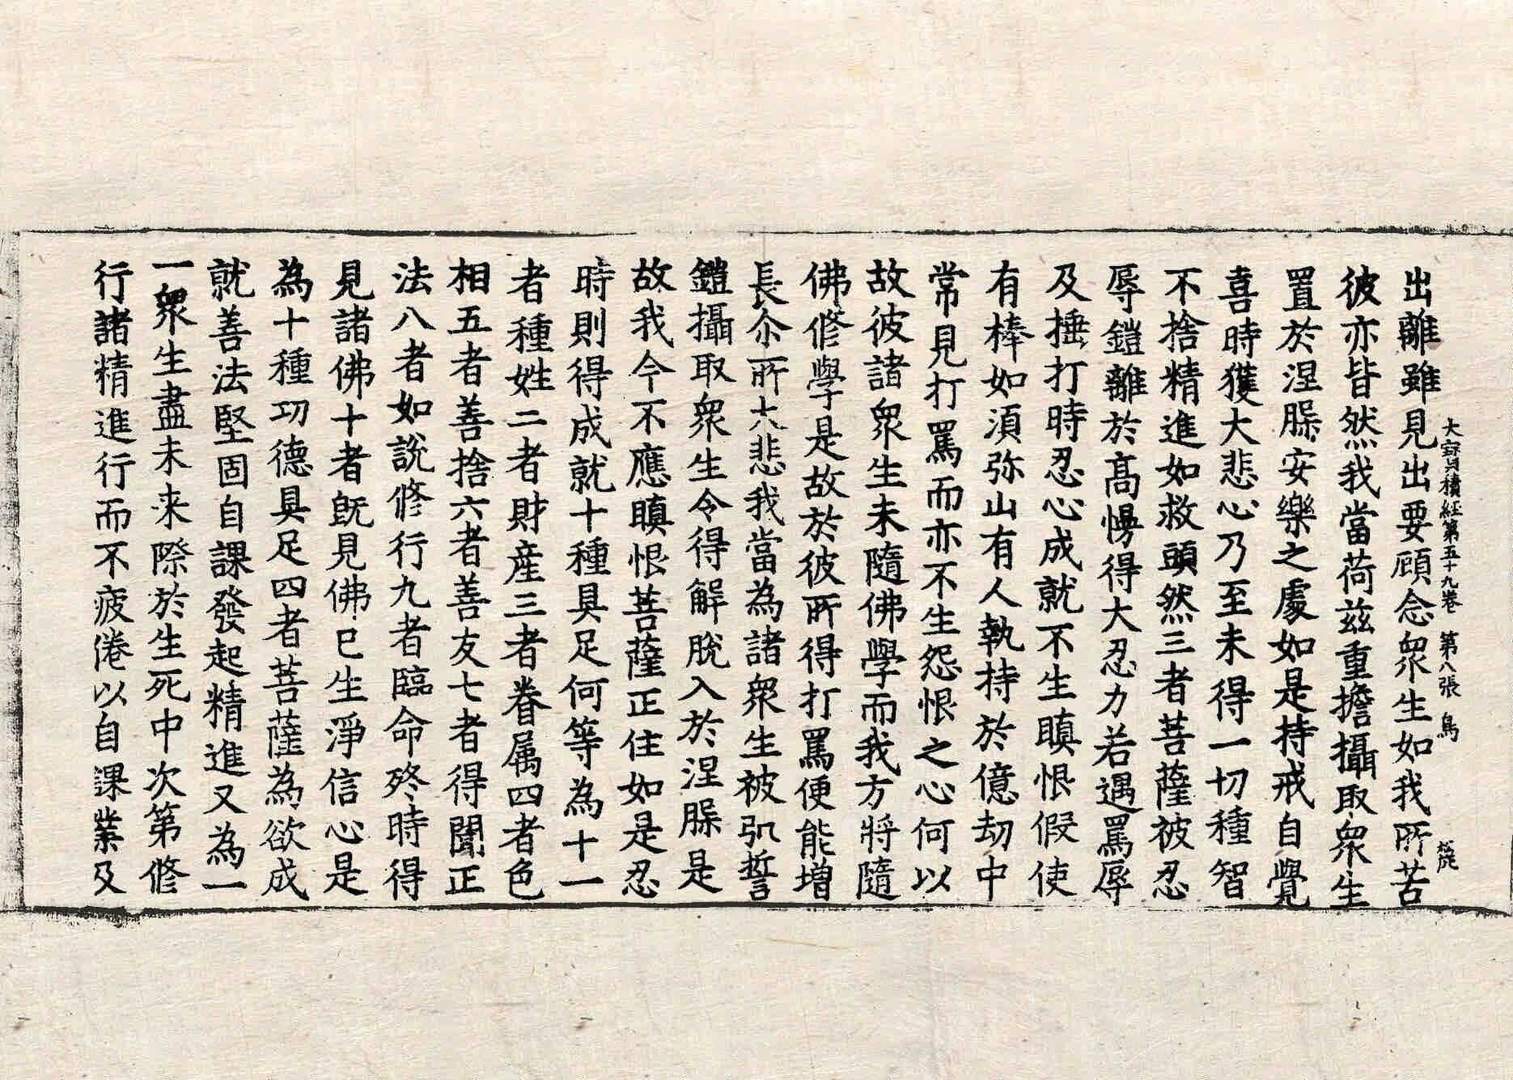 大寶積經第五十九卷 第八張 鳥
出離雖見出要顧念衆生如我所苦
彼亦皆然我當荷兹重擔攝取衆生
置於涅槃安樂之處如是持戒自覺
喜時獲大悲心乃至未得一切種智
不捨精進如救頭然三者菩薩被忍
辱鎧離於高慢得大忍力若遇罵辱
及捶打時忍心成就不生瞋恨假使
有棒如須弥山有人執持於億劫中
常見打罵而亦不生怨恨之心何以
故彼諸衆生未隨佛學而我方將隨
佛修學是故於彼所得打罵便能增
長尒所大悲我當為諸衆生被弘誓
鎧攝取衆生令得解脫入於涅槃是
故我今不應瞋恨菩薩正住如是忍
時則得成就十種具足何等為十一
者種姓二者財產三者眷属四者色
相五者善捨六者善友七者得聞正
法八者如說修行九者臨命終時得
見諸佛十者既見佛已生淨信心是
為十種功德具足四者菩薩為欲成
就善法堅固自課發起精進又為一
一衆生盡未来際於生死中次第修
行諸精進行而不疲倦以自課業及